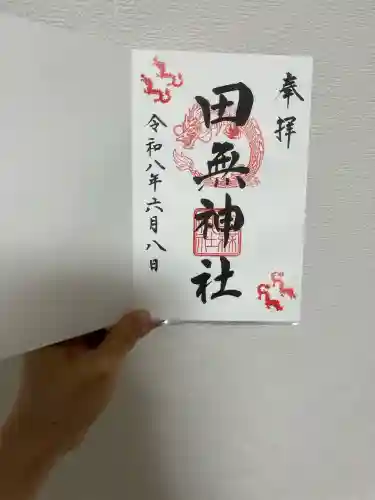 奉拝
田無神社
令和八年六月八日